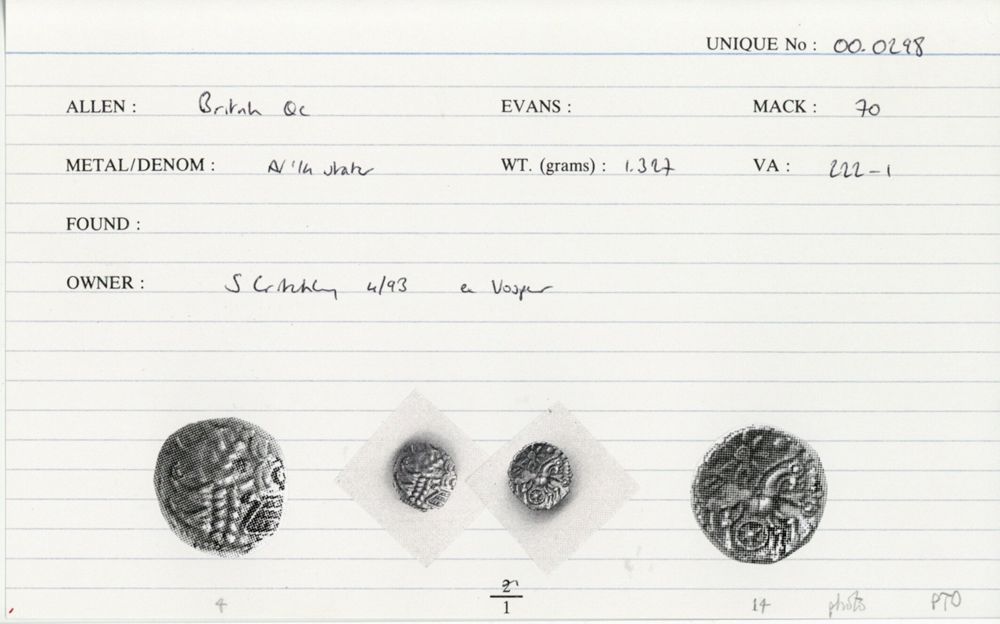 UNIQUE No : 00.0298
ALLEN : British Qc EVANS : MACK : 70
METAL/DENOM : AV 1/4 stater WT. (grams) : 1.327 VA : 222-1
FOUND :
OWNER : S Critchley 4/93 ex Vosper
2
1
4 14 photo PTO